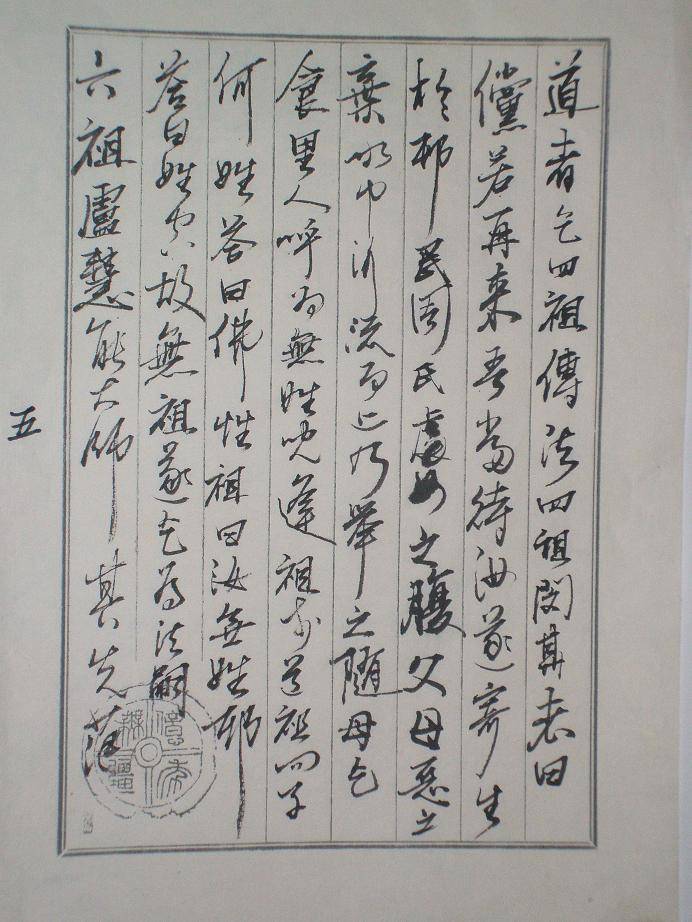 道者乞四祖傳法四祖閔其老曰
儻若再來吾當待汝遂寄生
於邨民周氏處女之腹父母惡之
棄中泝流而上乃舉之隨母乞
食里人呼為無姓兒逢祖於道祖問子
何姓答曰佛性祖曰汝無姓邪
答曰姓空故無祖遂乞為法嗣
六祖盧慧能大師 其先范
五
無疆